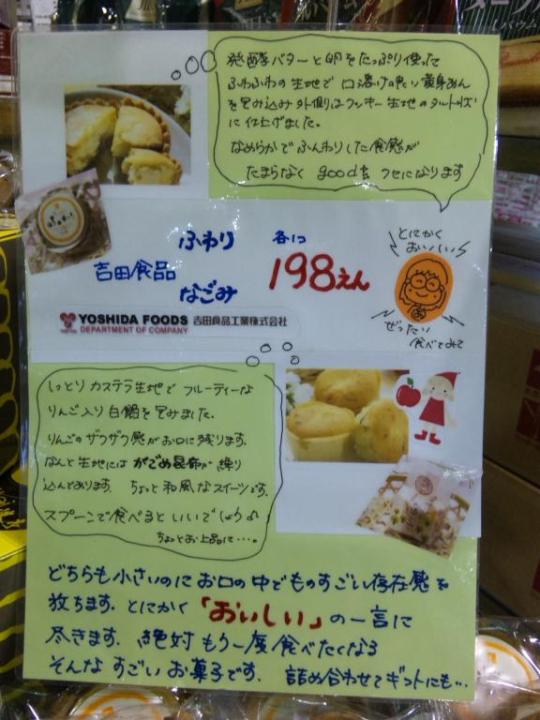 発酵バターと卵をたっぷり使った
ふわふわの生地で口溶けの良い黄身あん
を包み込み外側はクッキー生地のタルト状
に仕上げました。
なめらかでふんわりした食感が
たまらなくgoodを クセになります
ふわり
吉田食品
なごみ
各1つ
198えん
とにかく
おいしい
ぜったい
食べてみて
YOSHIDA FOODS 吉田食品工業株式会社
DEPARTMENT OF COMPANY
しっとりカステラ生地でフルーティーな
りんご入り白餡を包みました。
りんごのザクザク感がお口に残ります。
なんと生地にはがごめ昆布が練り
込んであります。ちょっと和風なスイーツです。
スプーンで食べるといいでしょう♪
ちょっとお上品に…。
どちらも小さいのにお口の中でものすごい存在感を
放ちます。とにかく「おいしい」の一言に
尽きます。絶対もう一度食べたくなる
そんなすごいお菓子です。詰め合わせてギフトにも…